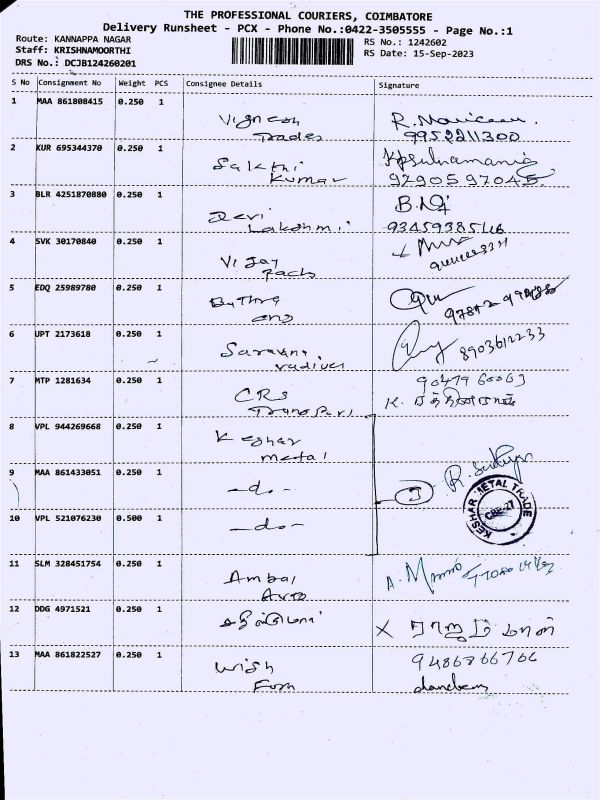 THE PROFESSIONAL COURIERS, COIMBATORE
Delivery Runsheet - PCX - Phone No.:0422-3505555 - Page No.:1
Route: KANNAPPA NAGAR
RS No.: 1242602
Staff: KRISHNAMOORTHI
RS Date: 15-Sep-2023
DRS No.: DCJB124260201
S No Consignment No Weight PCS Consignee Details Signature
1 MAA 861808415 0.250 1
Vignesh
Trades
9952211300
2 KUR 695344370 0.250 1
Sakthi
Kumar
9290597045
3 BLR 4251870880 0.250 1
Devi
Lakshmi
4 SVK 30170840 0.250 1
Vijay
5 EDQ 25989780 0.250 1
6 UPT 2173618 0.250 1
Saravana
vadivel
8903612233
7 MTP 1281634 0.250 1
CRS
Transport
8 VPL 944269668 0.250 1
Keshar
metal
9 MAA 861433051 0.250 1
-do-
3
KESHAR METAL TRADE
CBE-27
10 VPL 521076230 0.500 1
-do-
11 SLM 328451754 0.250 1
Ambal
Auto
12 DDG 4971521 0.250 1
13 MAA 861822527 0.250 1
Wish